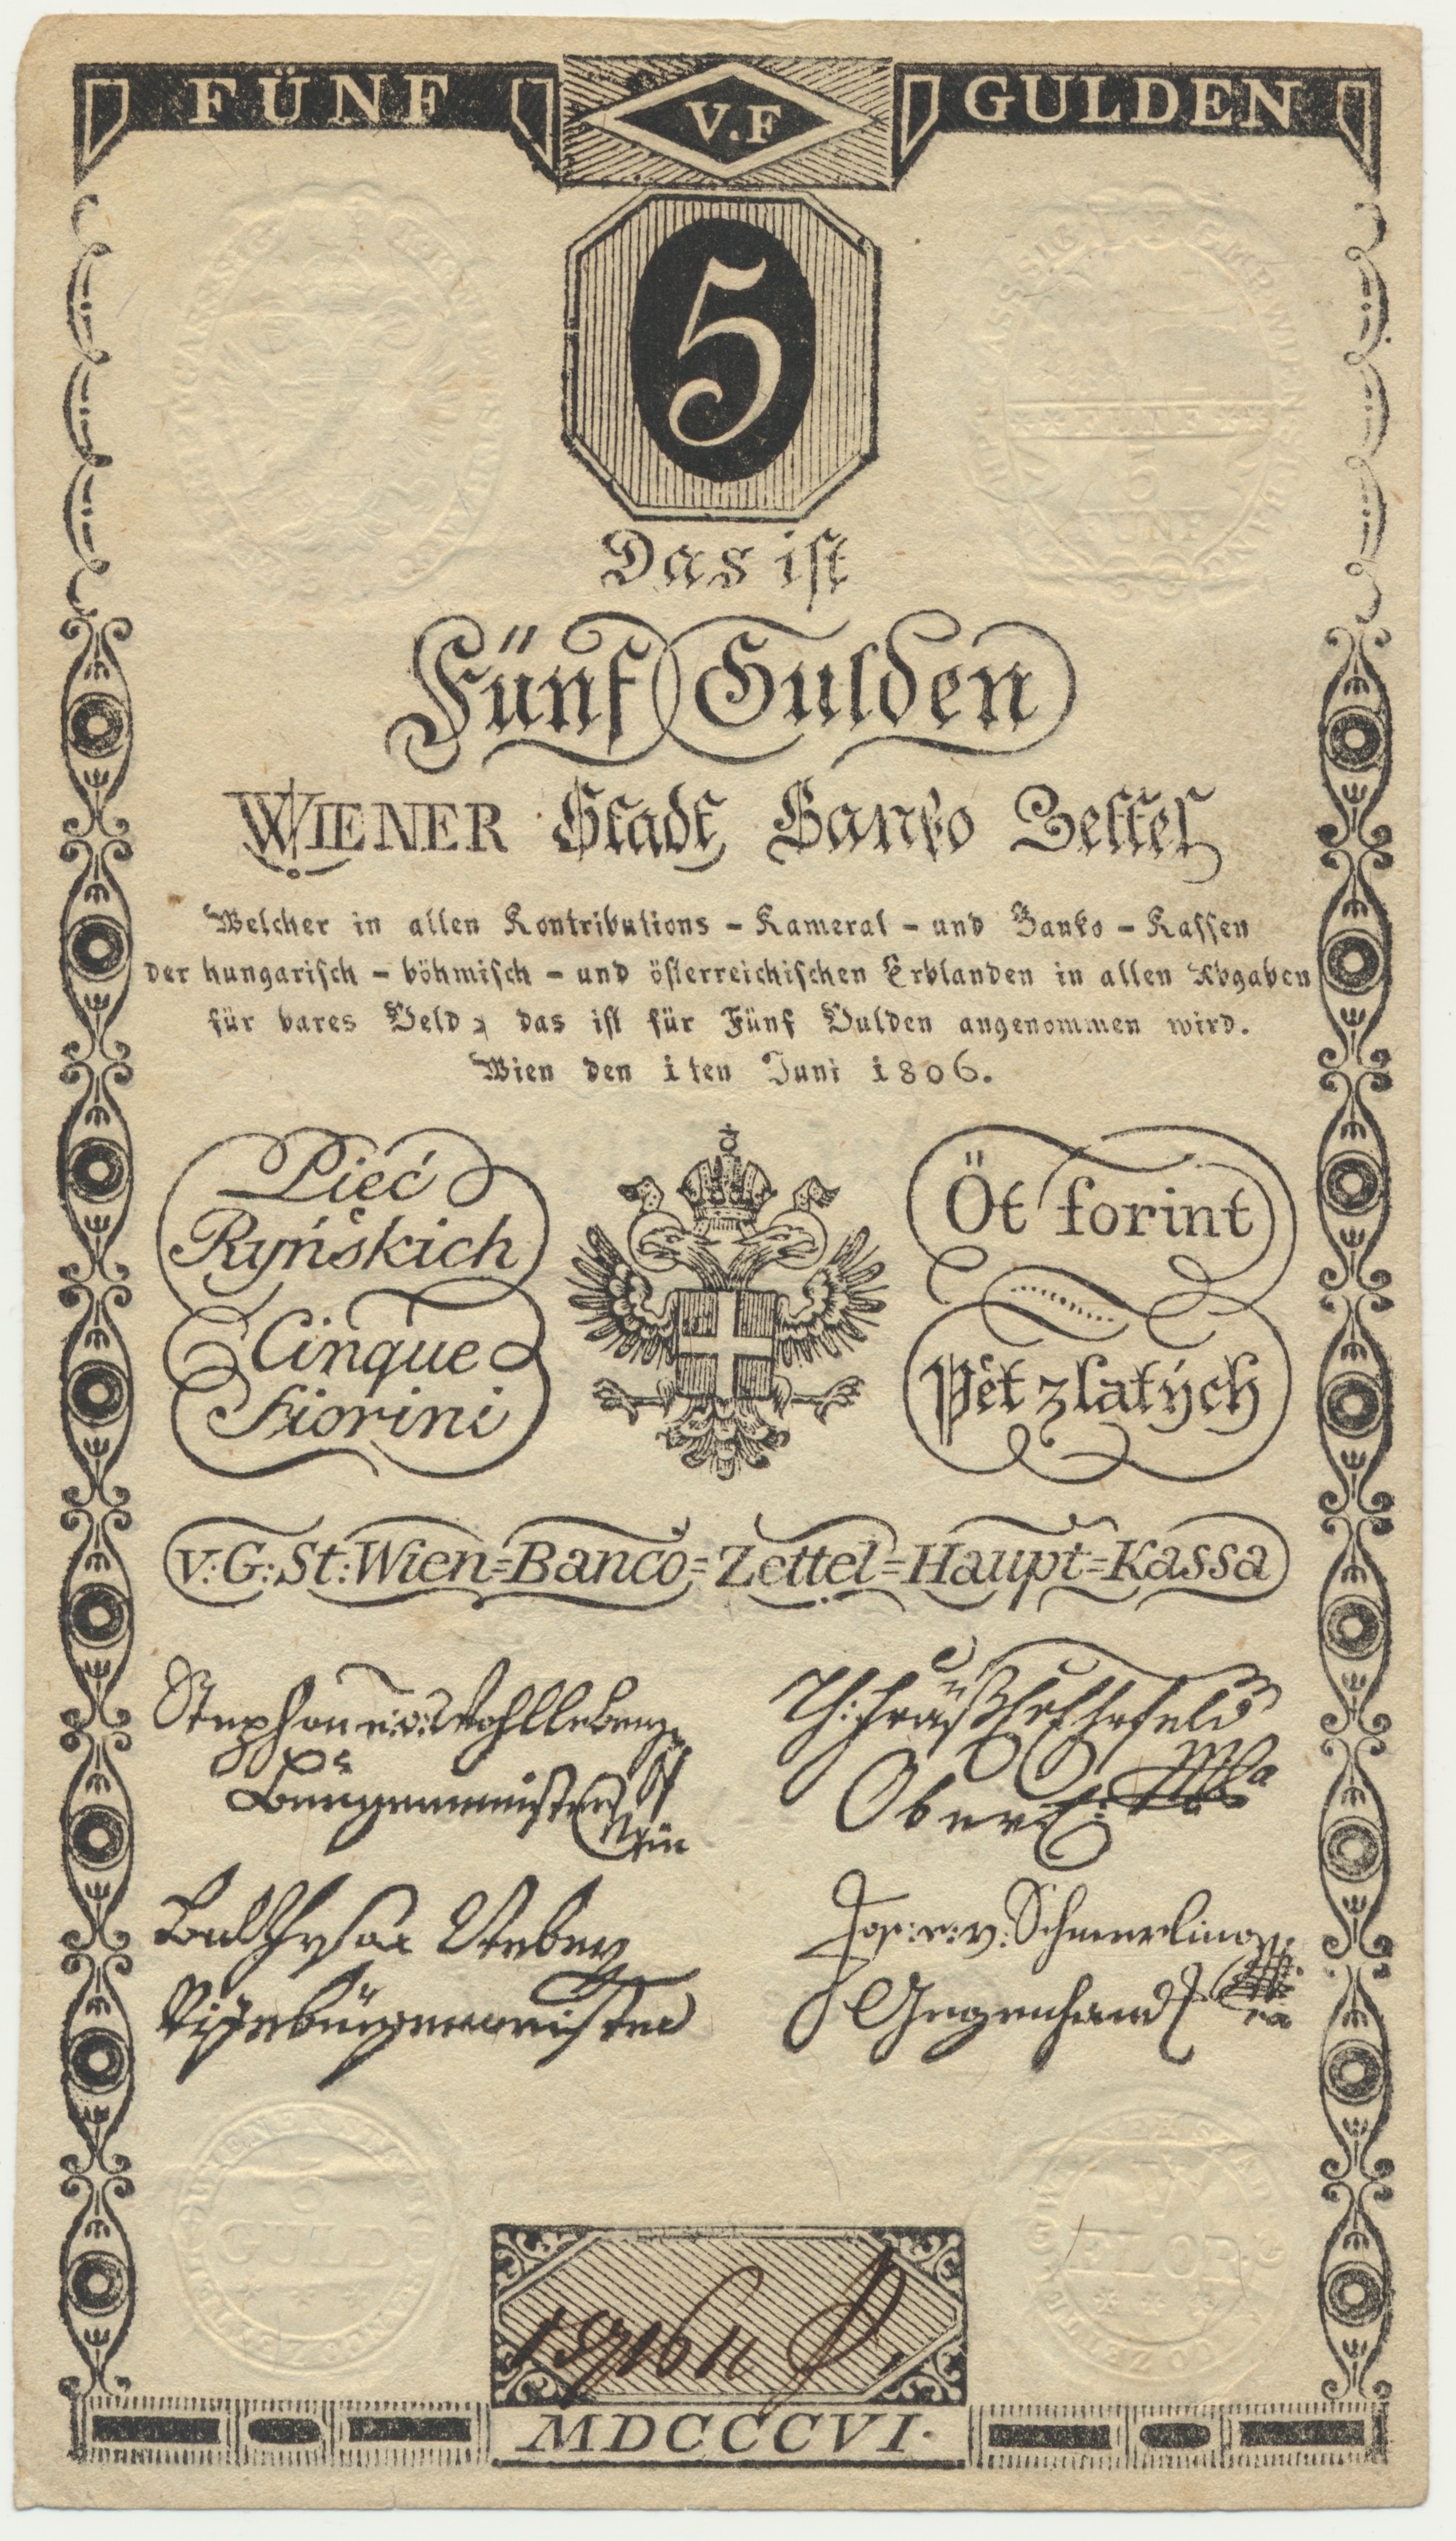 FÜNF V.F GULDEN
5
Das ist
Fünf Gulden
WIENER Stadt Banko Zettel
Welcher in allen Kontributions - Kameral - und Banko - Kassen
der hungarisch - böhmisch - und österreichischen Erblanden in allen Abgaben
für bares Geld, das ist für Fünf Gulden angenommen wird.
Wien den 1ten Juni 1806.
Pięć
Ryńskich
Cinque
Fiorini
Öt forint
Pět zlatých
V:G:St:Wien=Banco=Zettel=Haupt=Kassa
Stephan e:v: Wohlleben
Burgermeister
Obere
Jos: e: v: Schmerling
Gegenhand
Vizeburgermeister
FÜNF
5
FÜNF
GULD
FLOR
MDCCCVI.